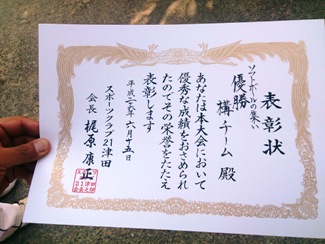 表彰状
ソフトボールの集い
優勝 構チーム 殿
あなたは本大会において
優秀な成績をおさめられ
たのでその栄誉をたたえ
表彰します
平成二六年 六月十五日
スポーツクラブ21津田
会長 梶原 康